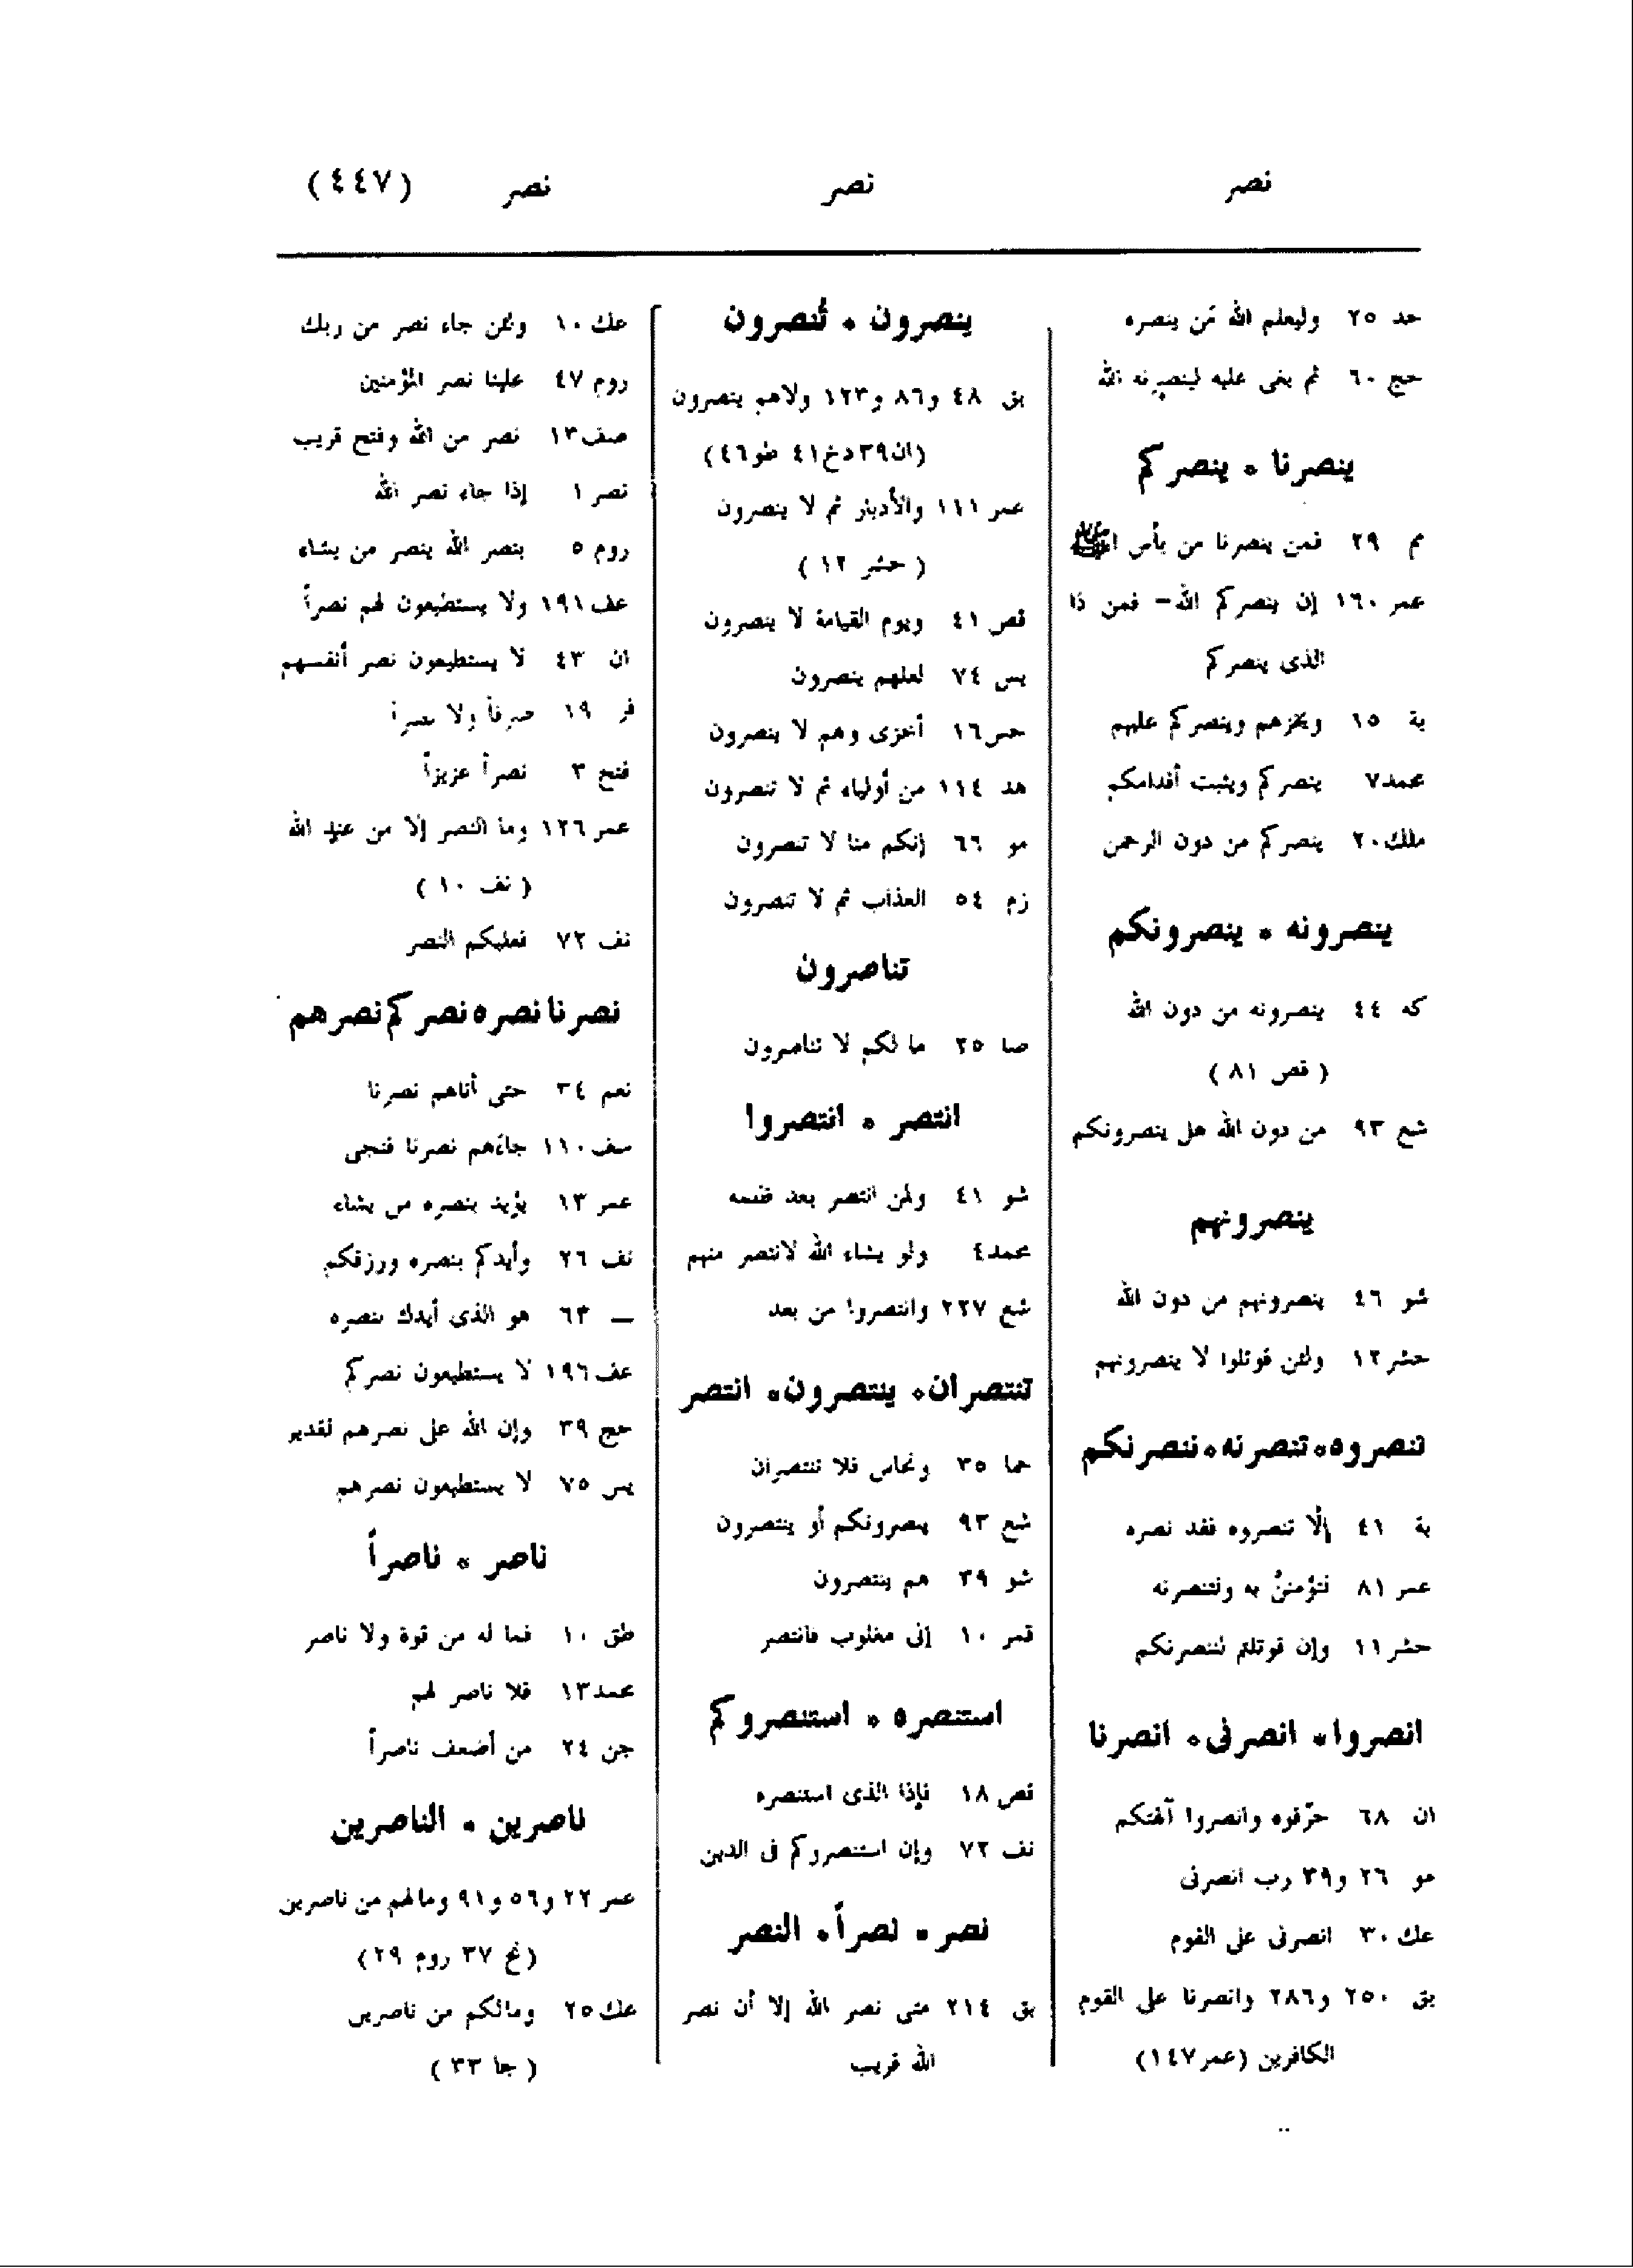 نصر
نصر
نصر
(٤٤٧)
حد ٢٥ وليعلم الله مَن ينصره
حج ٦٠ ثم بغى عليه لينصرنه الله
ينصرنا * ينصركم
مم ٢٩ فمن ينصرنا من بأس
عمر ١٦٠ إن ينصركم الله – فمن ذا
الذى ينصركم
بة ١٥ ويخزهم وينصركم عليهم
محمد ٧ ينصركم ويثبت أقدامكم
ملك ٢٠ ينصركم من دون الرحمن
ينصرونه * ينصرونكم
كه ٤٤ ينصرونه من دون الله
( قص ٨١ )
شع ٩٣ من دون الله هل ينصرونكم
ينصرونهم
شو ٤٦ ينصرونهم من دون الله
حشر ١٢ ولئن قوتلوا لا ينصرونهم
تنصروه * تنصرنه * ننصرنكم
بة ٤١ إلّا تنصروه فقد نصره
عمر ٨١ لتؤمننّ به ولتنصرنه
حشر ١١ وإن قوتلتم لننصرنكم
انصروا * انصرنى * انصرنا
ان ٦٨ حرّقوه وانصروا آلهتكم
مو ٢٦ و٣٩ رب انصرنى
عك ٣٠ انصرنى على القوم
بق ٢٥٠ و٢٨٦ وانصرنا على القوم
الكافرين (عمر ١٤٧)
ينصرون * تُنصرون
بق ٤٨ و٨٦ و١٢٣ ولاهم ينصرون
(ان ٣٩ دخ ٤١ طو ٤٦)
عمر ١١١ والأدبار ثم لا ينصرون
( حشر ١٢ )
قص ٤١ ويوم القيامة لا ينصرون
يس ٧٤ لعلهم ينصرون
حس ١٦ أخزى وهم لا ينصرون
هد ١١٤ من أولياء ثم لا تنصرون
مو ٦٦ إنكم منا لا تنصرون
زم ٥٤ العذاب ثم لا تنصرون
تناصرون
صا ٢٥ ما لكم لا تناصرون
انتصر * انتصروا
شو ٤١ ولمن انتصر بعد ظلمه
محمد ٤ ولو يشاء الله لانتصر منهم
شع ٢٢٧ وانتصروا من بعد
تنتصران * ينتصرون * انتصر
حما ٣٥ ونحاس فلا تنتصران
شع ٩٣ ينصرونكم أو ينتصرون
شو ٣٩ هم ينتصرون
قمر ١٠ إنى مغلوب فانتصر
استنصره * استنصروكم
قص ١٨ فإذا الذى استنصره
نف ٧٢ وإن استنصروكم فى الدين
نصر * نصراً * النصر
بق ٢١٤ متى نصر الله إلا أن نصر
الله قريب
عك ١٠ ولئن جاء نصر من ربك
روم ٤٧ علينا نصر المؤمنين
صف ١٣ نصر من الله وفتح قريب
نصر ١ إذا جاء نصر الله
روم ٥ بنصر الله ينصر من يشاء
عف ١٩١ ولا يستطيعون لهم نصراً
ان ٤٣ لا يستطيعون نصر أنفسهم
فر ١٩ صرفاً ولا نصراً
فتح ٣ نصراً عزيزاً
عمر ١٢٦ وما النصر إلا من عند الله
( نف ١٠ )
نف ٧٢ فعليكم النصر
نصرنا نصره نصركم نصرهم
نعم ٣٤ حتى أتاهم نصرنا
سف ١١٠ جاءهم نصرنا فنجى
عمر ١٣ يؤيد بنصره من يشاء
نف ٢٦ وأيدكم بنصره ورزقكم
— ٦٣ هو الذى أيدك بنصره
عف ١٩٦ لا يستطيعون نصركم
حج ٣٩ وإن الله على نصرهم لقدير
يس ٧٥ لا يستطيعون نصرهم
ناصر * ناصراً
طق ١٠ فما له من قوة ولا ناصر
محمد ١٣ فلا ناصر لهم
جن ٢٤ من أضعف ناصراً
ناصرين * الناصرين
عمر ٢٢ و٥٦ و٩١ ومالهم من ناصرين
(نح ٣٧ روم ٢٩)
عك ٢٥ ومالكم من ناصرين
( جا ٣٣ )